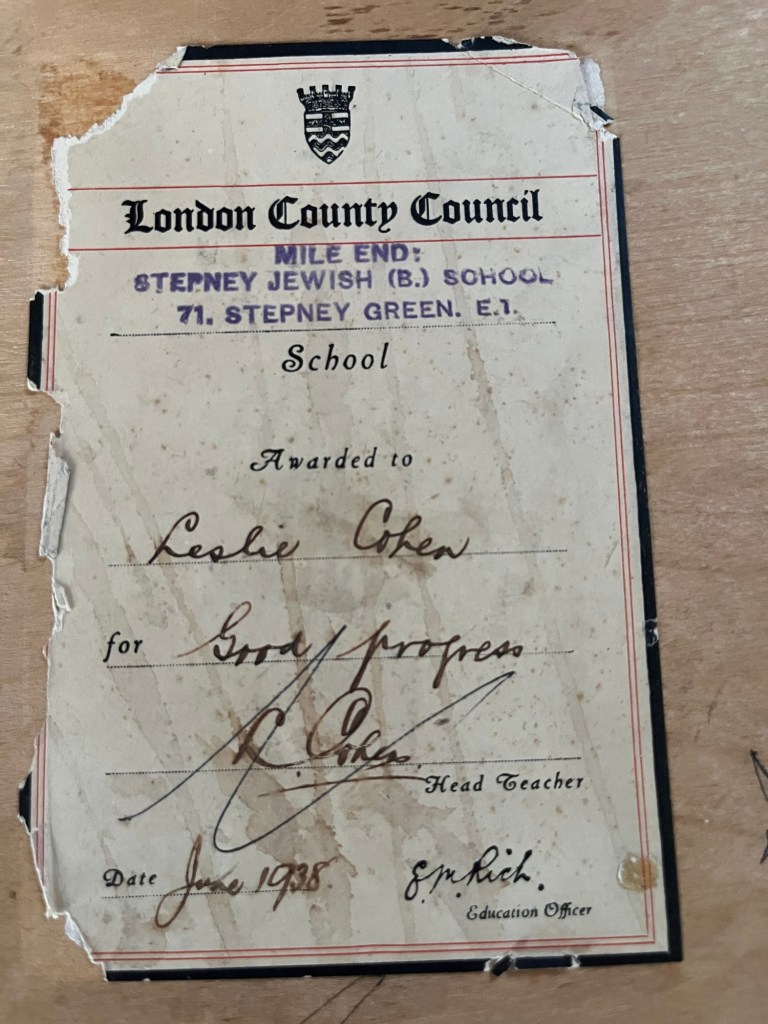 London County Council
MILE END:
STEPNEY JEWISH (B.) SCHOOL
71. STEPNEY GREEN. E.1.
School
Awarded to
Leslie Cohen
for Good progress
Cohen
Head Teacher
Date June 1938. E.M. Rich.
Education Officer